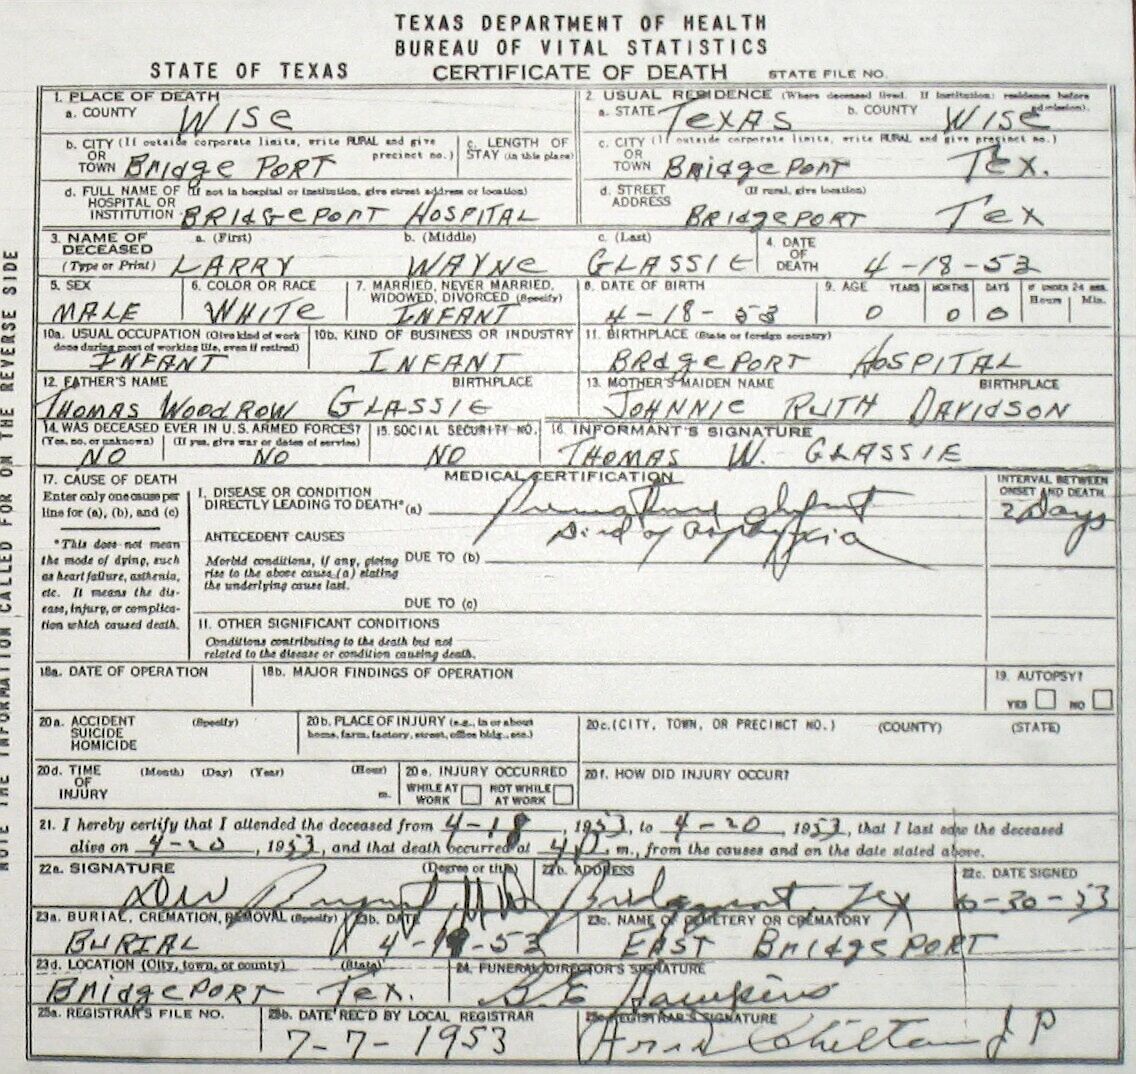 TEXAS DEPARTMENT OF HEALTH
BUREAU OF VITAL STATISTICS
STATE OF TEXAS CERTIFICATE OF DEATH STATE FILE NO.
1. PLACE OF DEATH
a. COUNTY WISE
2. USUAL RESIDENCE (Where deceased lived. If institution: residence before admission).
a. STATE TEXAS b. COUNTY WISE
b. CITY (If outside corporate limits, write RURAL and give precinct no.)
OR
TOWN BRidge PORT
c. LENGTH OF
STAY (in this place)
c. CITY (If outside corporate limits, write RURAL and give precinct no.)
OR
TOWN BRidgePORT TEX.
d. FULL NAME OF (If not in hospital or institution, give street address or location)
HOSPITAL OR
INSTITUTION BRIdgePORT HOSPITAL
d. STREET (If rural, give location)
ADDRESS BRidgePORT TEX
3. NAME OF a. (First) b. (Middle) c. (Last)
DECEASED
(Type or Print) LARRY WAYNE GLASSIE
4. DATE
OF
DEATH 4-18-53
5. SEX
MALE
6. COLOR OR RACE
WHITE
7. MARRIED, NEVER MARRIED,
WIDOWED, DIVORCED (Specify)
INFANT
8. DATE OF BIRTH
4-18-53
9. AGE YEARS MONTHS DAYS IF UNDER 24 HRS.
Hours Min.
0 0 0
10a. USUAL OCCUPATION (Give kind of work
done during most of working life, even if retired)
INFANT
10b. KIND OF BUSINESS OR INDUSTRY
INFANT
11. BIRTHPLACE (State or foreign country)
BRdgePORT HOSPITAL
12. FATHER'S NAME BIRTHPLACE
THOMAS WOODROW GLASSIE
13. MOTHER'S MAIDEN NAME BIRTHPLACE
JOHNNIE RUTH DAVIDSON
14. WAS DECEASED EVER IN U.S. ARMED FORCES?
(Yes, no, or unknown) (If yes, give war or dates of service)
NO NO
15. SOCIAL SECURITY NO.
NO
16. INFORMANT'S SIGNATURE
THOMAS W. GLASSIE
MEDICAL CERTIFICATION
17. CAUSE OF DEATH
Enter only one cause per
line for (a), (b), and (c)
*This does not mean
the mode of dying, such
as heart failure, asthenia,
etc. It means the dis-
ease, injury, or complica-
tion which caused death.
I. DISEASE OR CONDITION
DIRECTLY LEADING TO DEATH* (a) Premature infant
died of asphyxia
INTERVAL BETWEEN
ONSET AND DEATH
2 Days
ANTECEDENT CAUSES
Morbid conditions, if any, giving
rise to the above cause (a) stating
the underlying cause last.
DUE TO (b)
DUE TO (c)
II. OTHER SIGNIFICANT CONDITIONS
Conditions contributing to the death but not
related to the disease or condition causing death.
18a. DATE OF OPERATION
18b. MAJOR FINDINGS OF OPERATION
19. AUTOPSY?
YES NO
20a. ACCIDENT (Specify)
SUICIDE
HOMICIDE
20b. PLACE OF INJURY (e.g., in or about
home, farm, factory, street, office bldg., etc.)
20c. (CITY, TOWN, OR PRECINCT NO.) (COUNTY) (STATE)
20d. TIME (Month) (Day) (Year) (Hour)
OF
INJURY m.
20e. INJURY OCCURRED
WHILE AT WORK NOT WHILE AT WORK
20f. HOW DID INJURY OCCUR?
21. I hereby certify that I attended the deceased from 4-18, 1953, to 4-20, 1953, that I last saw the deceased
alive on 4-20, 1953, and that death occurred at m., from the causes and on the date stated above.
22a. SIGNATURE (Degree or title)
M D
22b. ADDRESS
Bridgeport Tex
22c. DATE SIGNED
6-30-53
23a. BURIAL, CREMATION, REMOVAL (Specify)
BURIAL
23b. DATE
4-19-53
23c. NAME OF CEMETERY OR CREMATORY
EAST BRidge PORT
23d. LOCATION (City, town, or county) (State)
BRidgePORT TEX.
24. FUNERAL DIRECTOR'S SIGNATURE
Hawkins
25a. REGISTRAR'S FILE NO.
25b. DATE REC'D BY LOCAL REGISTRAR
7-7-1953
25c. REGISTRAR'S SIGNATURE
J P
NOTE THE INFORMATION CALLED FOR ON THE REVERSE SIDE